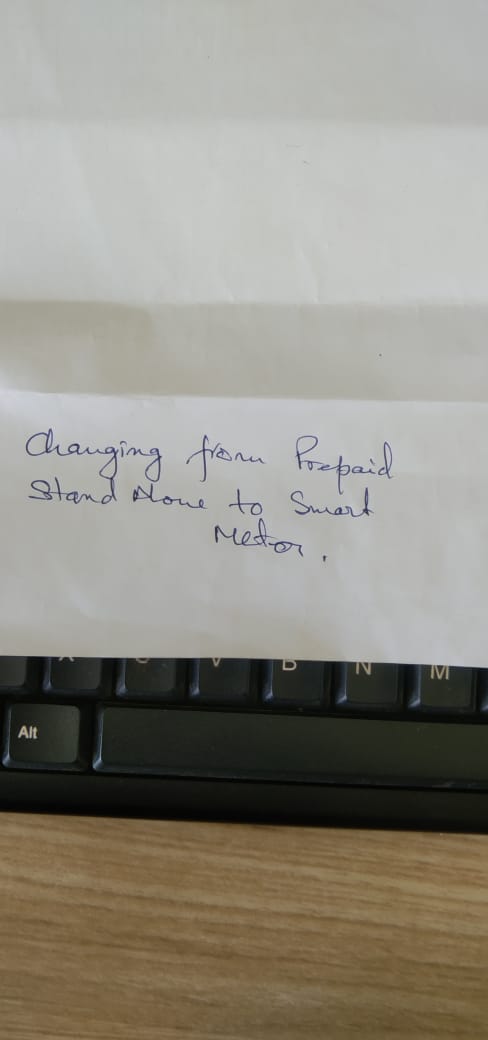 Changing from Prepaid
Stand Alone to Smart
Meter.
V B N M
Alt